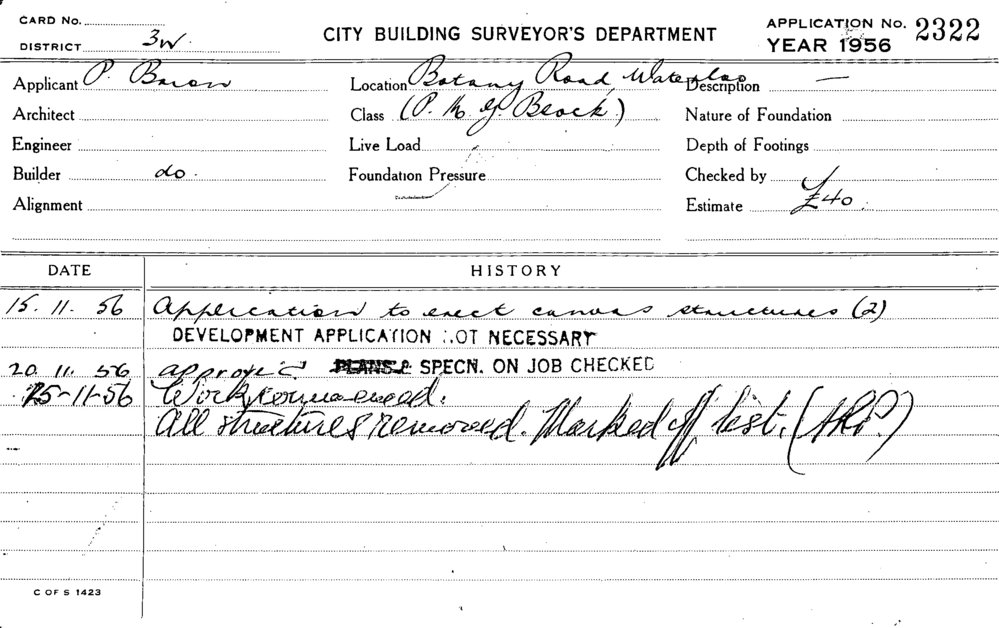 CARD No.
DISTRICT 3W.
CITY BUILDING SURVEYOR'S DEPARTMENT
APPLICATION No. 2322
YEAR 1956
Applicant P. Baron
Location Botany Road, Waterloo
Description —
Architect
Class (P. M. G. Block)
Nature of Foundation
Engineer
Live Load
Depth of Footings
Builder do.
Foundation Pressure
Checked by
Alignment
Estimate £40.
DATE
HISTORY
15. 11. 56 Application to erect canvas structures (2)
DEVELOPMENT APPLICATION NOT NECESSARY
20 11. 56 approved PLANS & SPECN. ON JOB CHECKED
25-11-56 Work commenced.
All structures removed. Marked off list.
C OF S 1423